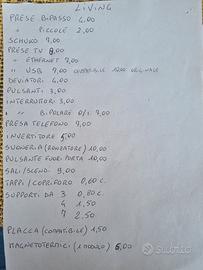 LIVING
PRESE BIPASSO 4,00
" PICCOLE 2,00
SCHUKO 7,00
PRESE TV 8,00
" ETHERNET 7,00
" USB 7,00 COMPATIBILE
DEVIATORI 4,00
PULSANTI 3,00
INTERRUTTORI 3,00
" " BIPOLARE 0/1 7,00
PRESA TELEFONO 7,00
INVERTITORE 5,00
SUONERIA (RONZATORE) 10,00
PULSANTE FUORI PORTA 10,00
SALI/SCENDI 9,00
TAPPI / COPRIFORO 0,60 C.
SUPPORTI DA 3 0,80 C.
4 1,50
7 2,50
PLACCA (COMPATIBILE) 1,50
MAGNETOTERMICI (1 MODULO) 6,00
subito.it